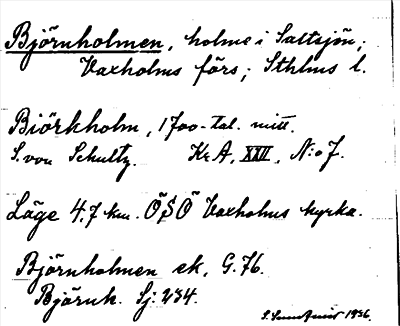 Björnholmen, holme i Saltsjön;
Vaxholms förs; Sthlms l.
Biörkholm, 1700-tal. mitt.
S. von Schultz. Kr A, XXII, N:o 7.
Läge 4,7 km. ÖSÖ Vaxholms kyrka.
Björnholmen ek, G. 76.
Björnh. Sj. 234.
1936.